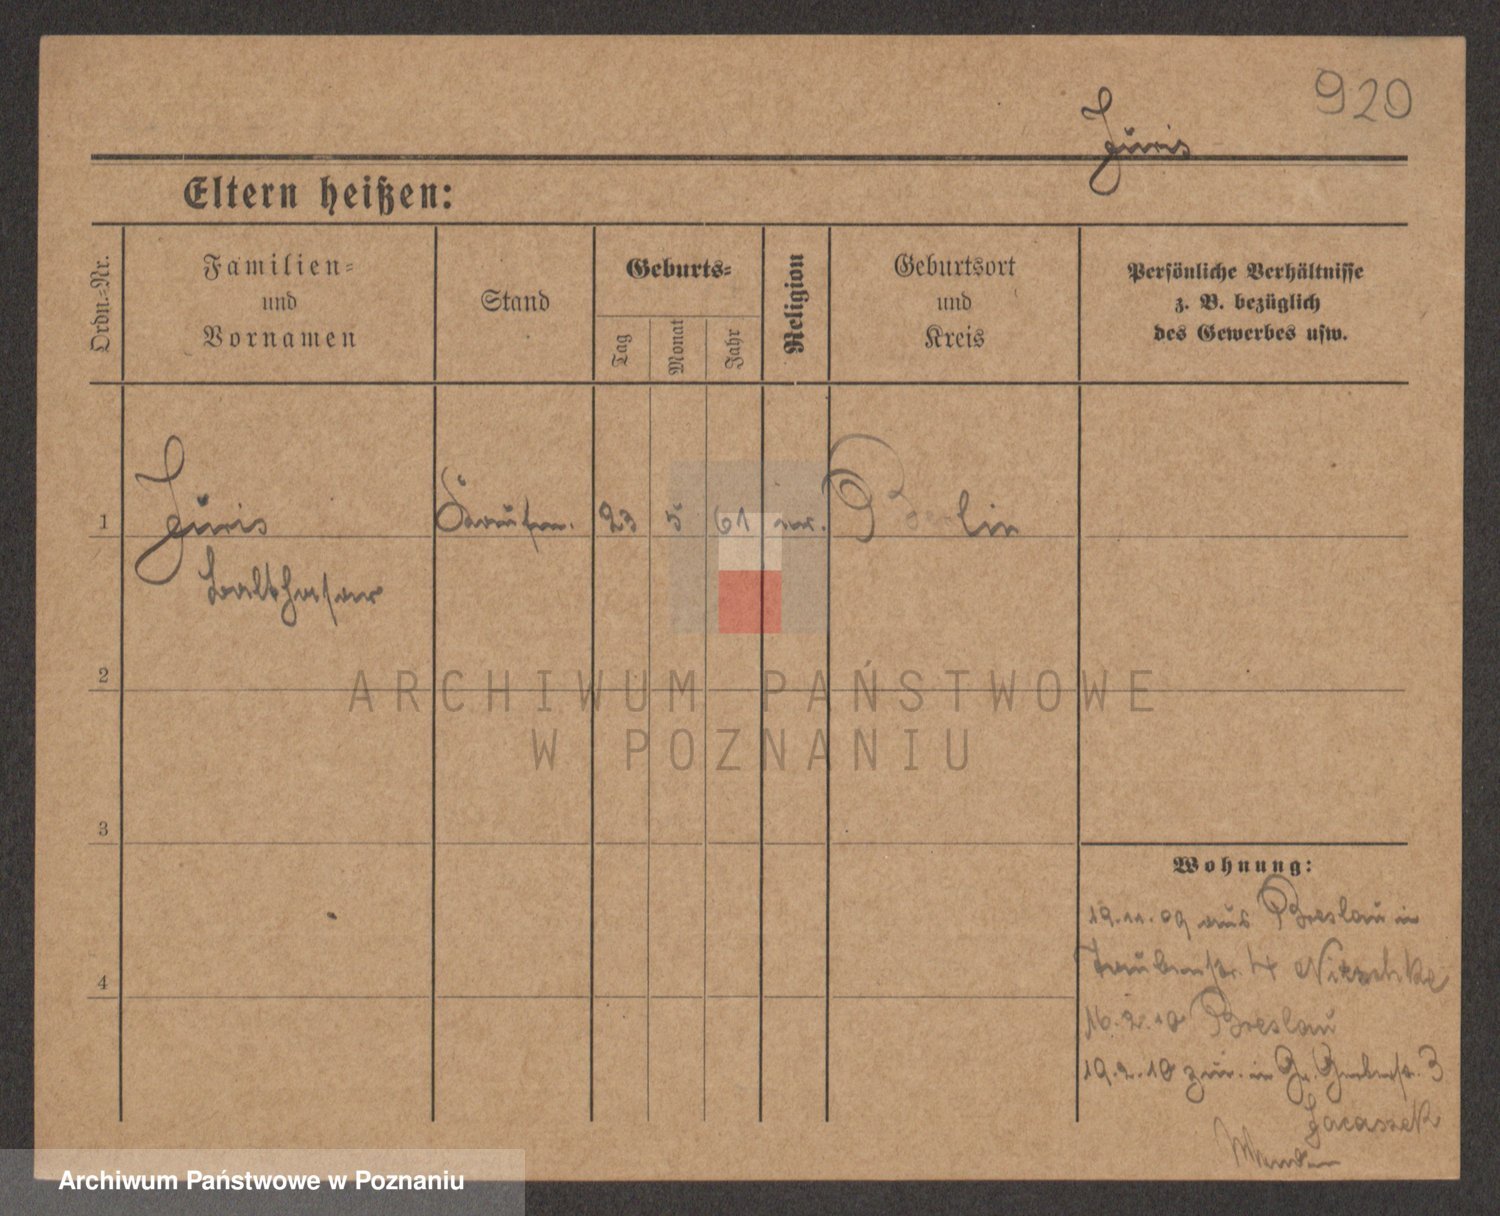 920
Jüris
Eltern heißen:
Ordn.=Nr.
Familien=
und
Vornamen
Stand
Geburts=
Tag
Monat
Jahr
Religion
Geburtsort
und
Kreis
Persönliche Verhältnisse
z. B. bezüglich
des Gewerbes usw.
1
Jüris
Balthasar
23
5
61
Berlin
2
ARCHIWUM PAŃSTWOWE
W POZNANIU
3
Wohnung:
19.11.09 aus Breslau in
Taubenstr. 4 Nitschke
4
16.2.10 Breslau
19.2.10 zur. in Gr. Gerberstr. 3
Jacassek
Archiwum Państwowe w Poznaniu